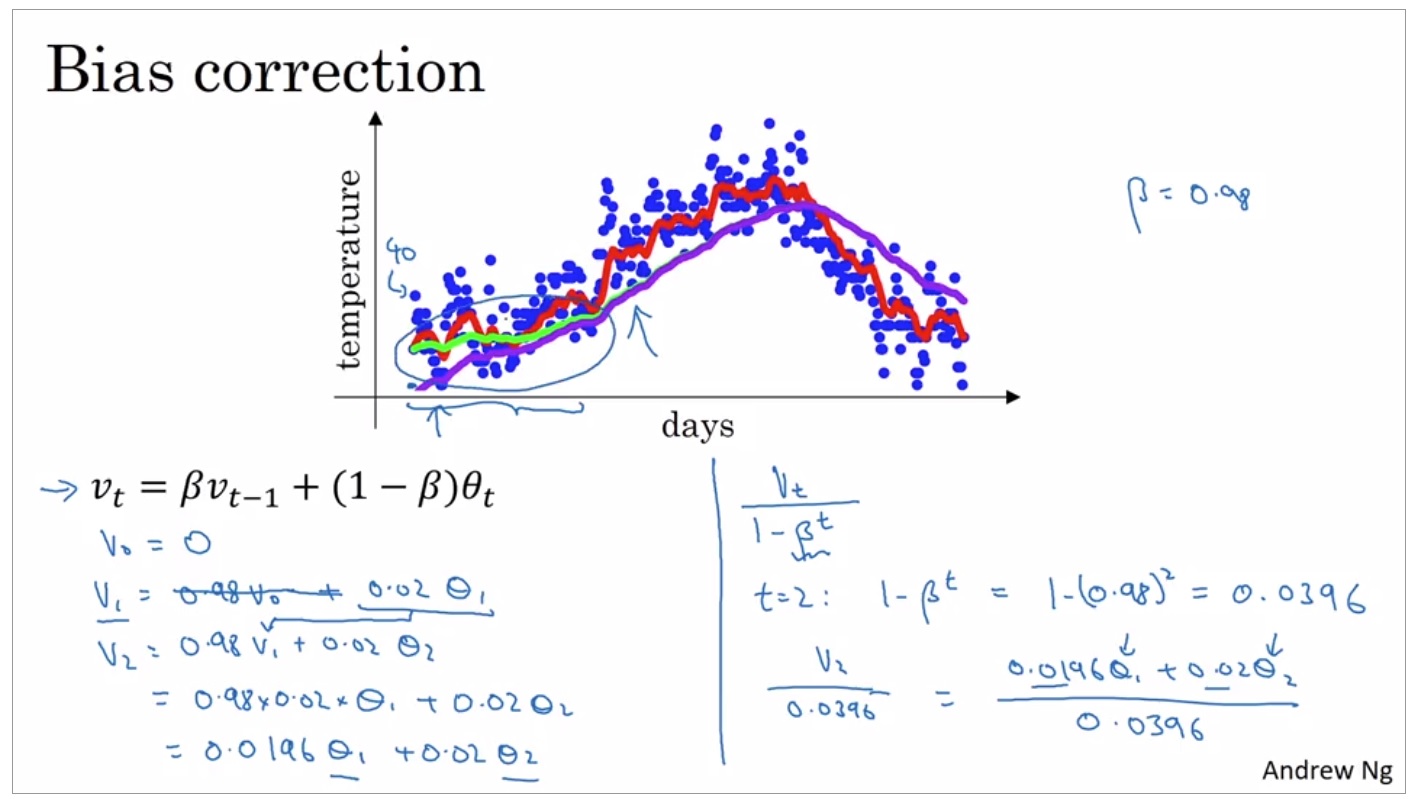 Bias correction
β = 0.98
40
temperature
days
→ vₜ = βvₜ₋₁ + (1 − β)θₜ
V₀ = 0
V₁ = 0.98 V₀ + 0.02 θ₁
V₂ = 0.98 V₁ + 0.02 θ₂
= 0.98 x 0.02 x θ₁ + 0.02 θ₂
= 0.0196 θ₁ + 0.02 θ₂
Vₜ
1 - βᵗ
t=2: 1 - βᵗ = 1-(0.98)² = 0.0396
V₂ / 0.0396 = 0.0196 θ₁ + 0.02 θ₂ / 0.0396
Andrew Ng